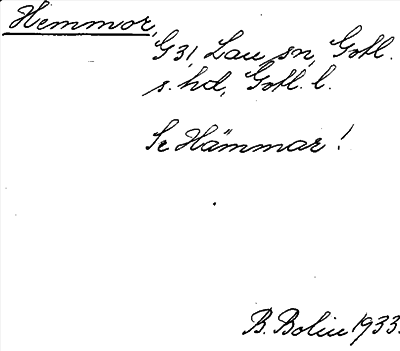 Hemmor,
G 31 Lau sn, Gotl.
s. hd, Gotl. l.
Se Hämmar!
B. Bolin 1933.